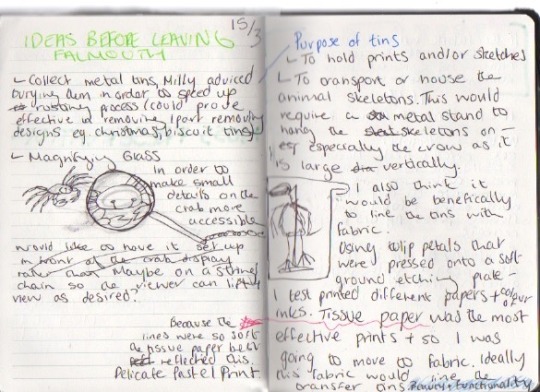 IDEAS BEFORE LEAVING
FALMOUTH
15/3
- Collect metal tins, Milly adviced
burying them in order to speed up
rusting process (could prove
effective in removing / part removing
designs eg. christmas biscuit tins)
- Magnifying Glass
In order to
make small
details on the
crab more
accessible
would like to have it set up
in front of the crab display
rather than Maybe on a string/
chain so the viewer can lift/
view as desired.
Because the
lines were so soft
the tissue paper best
reflected this.
Delicate Pastel Print
Purpose of tins
- To hold prints and/or sketches
- To transport or house the
animal skeletons. This would
require a metal stand to
hang the skeletons on -
especially the crow as it
is large vertically.
I also think it
would be benefically
to line the tins with
fabric.
Using tulip petals that
were pressed onto a soft
ground etching plate -
I test printed different papers + colour
inks. Tissue paper was the most
effective prints + so I was
going to move to fabric. Ideally
this fabric would line the
transfer tins. Beauty + functionality